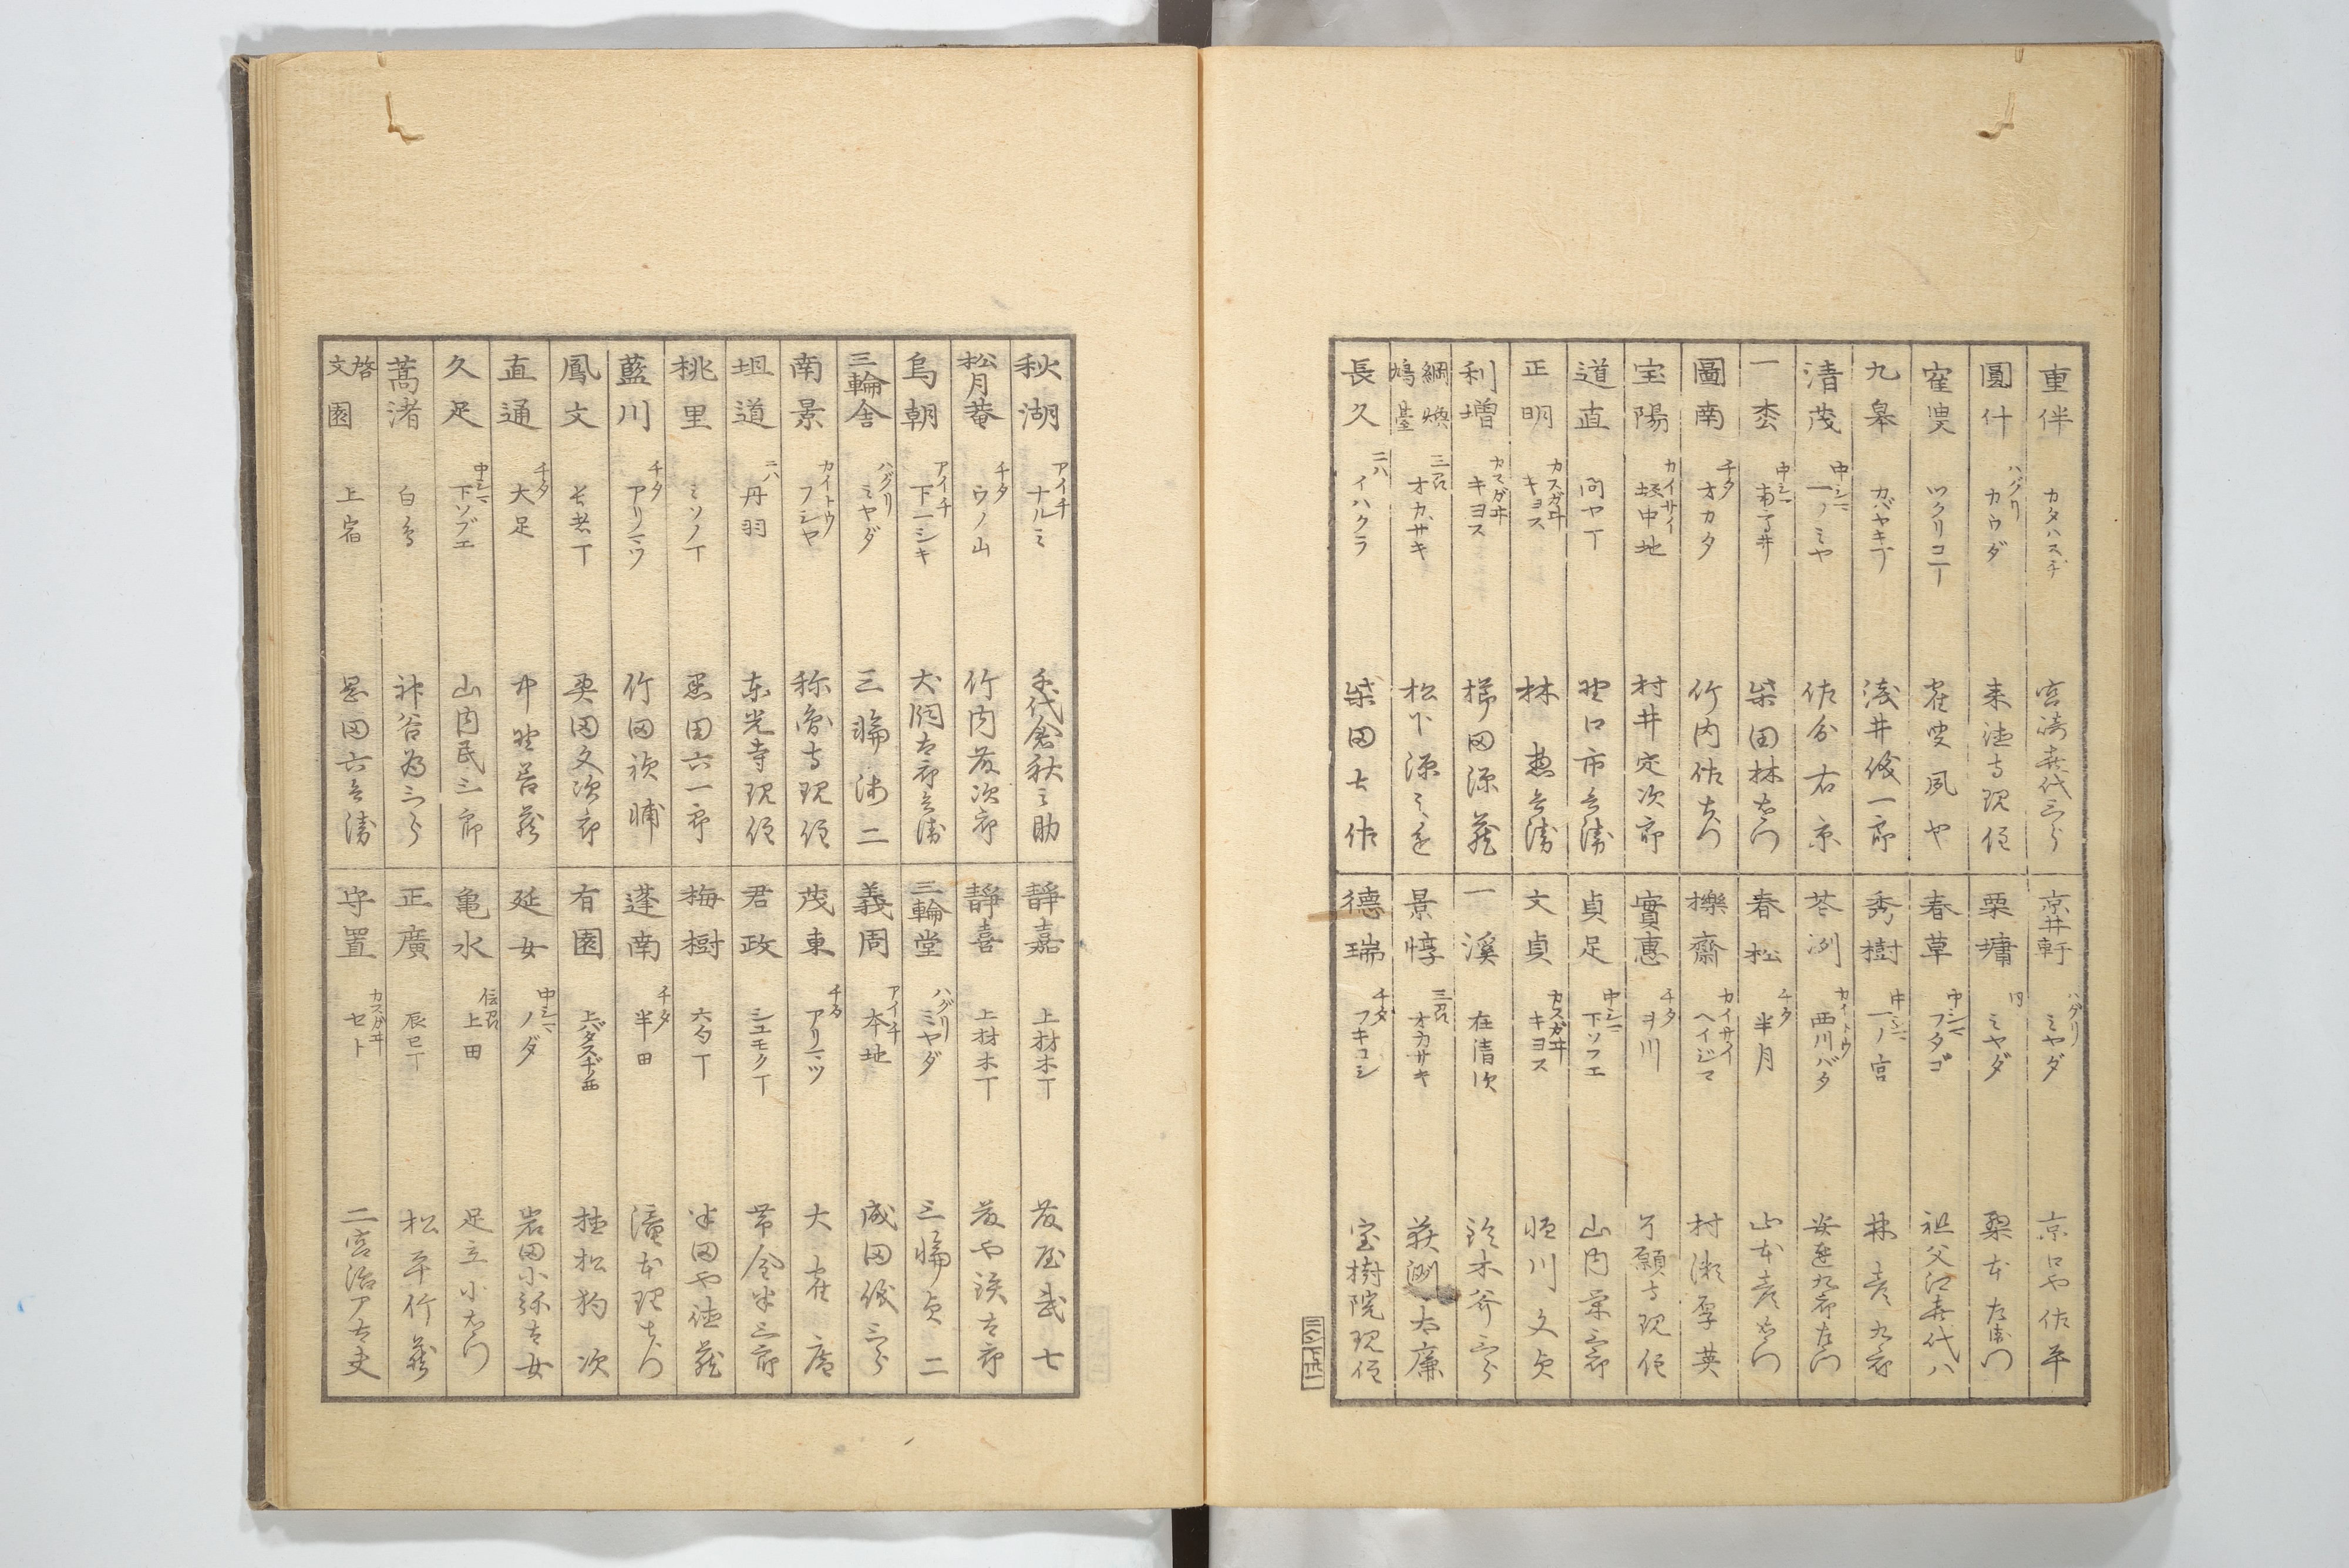 重伴 カタハスギ 宮崎喜代三郎
圓什 ハグリ カウダ 来徳寺現住
寉叟 ツクリコ丁 寉叟凨や
九皐 カバヤキ丁 浅井俊一郎
清茂 中シマ 一ノミヤ 佐分右京
一枩 中シマ 柴田林右衛門
圖南 チタ オカタ 竹内佐左衛門
宝陽 カイサイ 坂中地 村井定次郎
道直 問ヤ丁 野口市兵衛
正明 カスガヰ キヨス 林 惣兵衛
利増 カスガヰ キヨス 梯田源蔵
綱煥 鳩臺 三河 オカサキ 松下源之進
長久 ニハ イハクラ 柴田七作
京井軒 ハグリ ミヤダ 京口や佐平
栗墉 同 ミヤダ 梨本左衛門
春草 中シマ フタゴ 祖父江喜代八
秀樹 中シマ 一ノ宮 林彦九郎
苍洌 カイトウ 西川バタ 安達九郎右衛門
春松 チタ 半月 山本彦右衛門
擽齋 カイサイ ヘイジマ 村瀬厚英
實惠 チタ ヲ川 了願寺現住
貞足 中シマ 下ソフエ 山内栄三郎
文貞 カスガヰ キヨス 恒川文貞
一溪 在清次 鈴木斧三郎
景惇 三河 オカサキ 荻洌太廉
德瑞 チタ フキコシ 宝樹院現住
秋湖 アイチ ナルミ 千代倉秋之助
松月菴 チタ ウノ山 竹内茂次郎
烏朝 アイチ 下一シキ 犬飼吉郎兵衛
三輪舎 ハグリ ミヤダ 三輪沸二
南景 カイトウ フシヤ 称念寺現住
坥道 ニハ 丹羽 东光寺現住
桃里 ミソノ丁 黒田六一郎
藍川 チタ アリマツ 竹田祯晡
鳳文 長者丁 奥田文次郎
直通 チタ 大足 中野善蔵
久足 中シマ 下ソブエ 山内民三郎
蒿渚 白鳥 神谷為三郎
啓文園 上宿 黒田六兵衛
靜嘉 上材木丁 菱屋武七
靜喜 上材木丁 菱や鉄吉郎
三輪堂 ハグリ ミヤダ 三輪貞二
義周 アイチ 本地 成田儀三郎
茂東 チタ アリマツ 大寉庸
君政 シユモク丁 帯金半三郎
梅樹 六句丁 半田や徳蔵
蓬南 チタ 半田 濱本理左衛門
有園 上バタスヂ西 植松豹次
延女 中シマ ノダ 岩田小弥吉女
亀水 信州 上田 足立小右衛門
正廣 辰巳丁 松平竹蔵
守置 カスガヰ セト 二宮治ア太夫